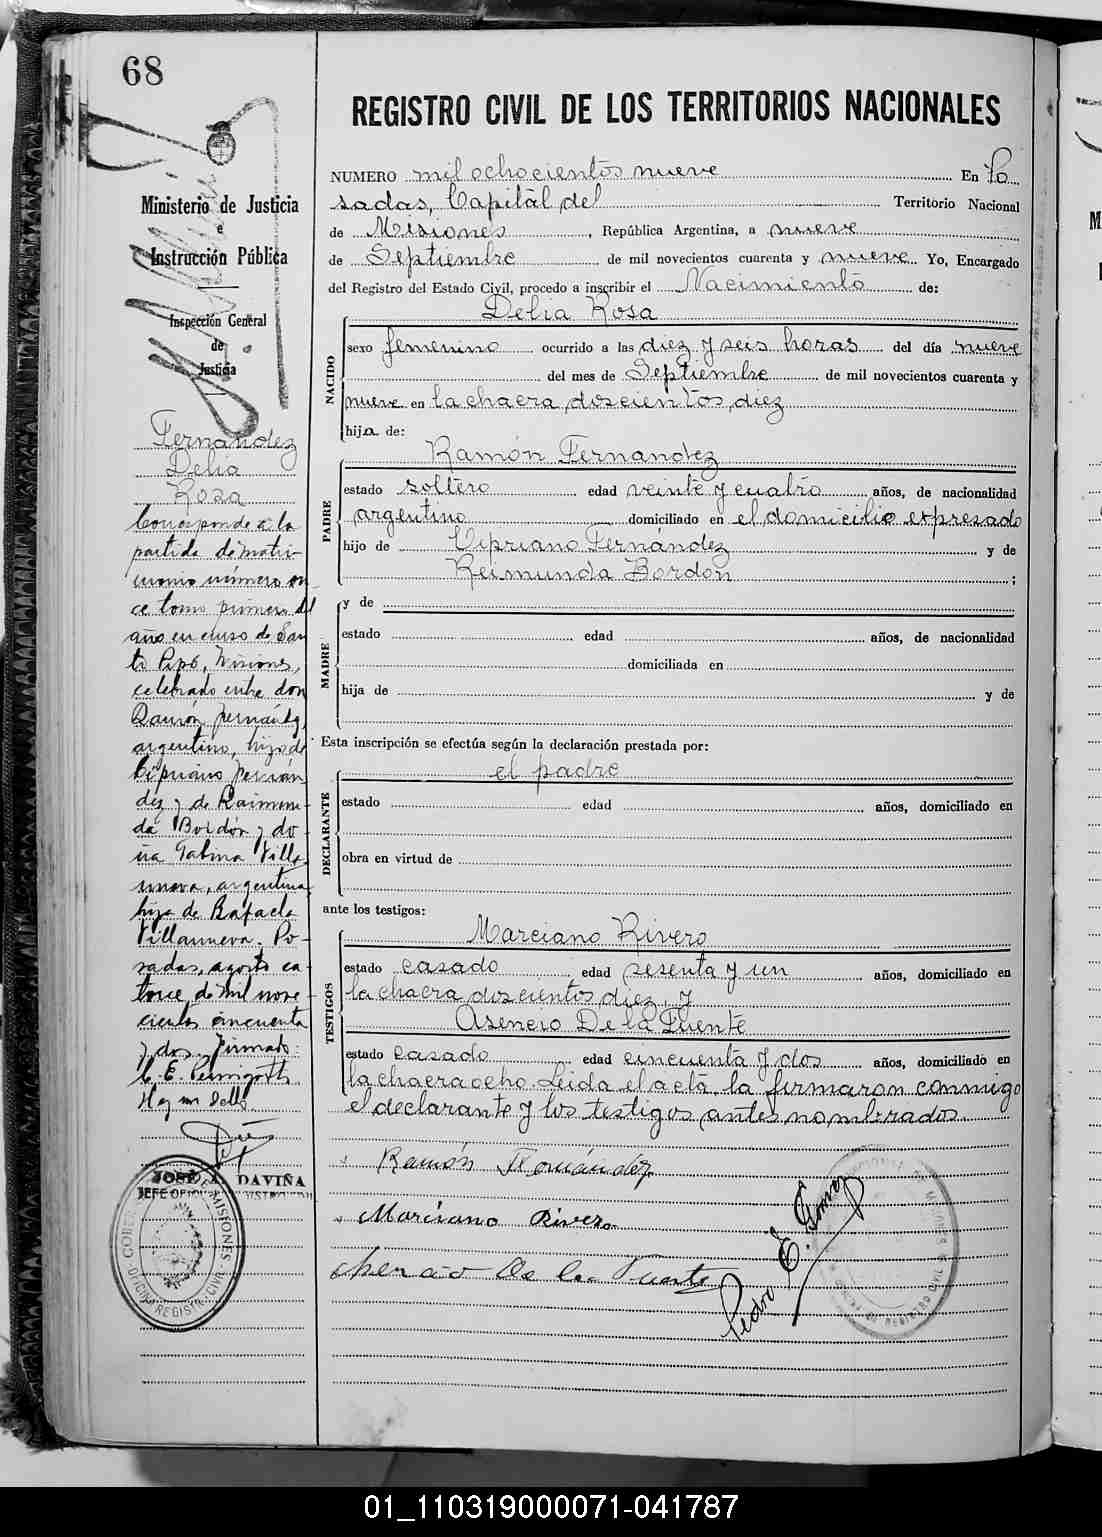 68
Ministerio de Justicia
e
Instrucción Pública
Inspección General
de
Justicia
Fernández
Delia
Rosa
Corresponde a la
partida de matri-
monio número on
ce tomo primero del
año en curso de San
to Pipó, Misiones,
celebrado entre don
Ramón Fernández,
argentino, hijo de
Cipriano Fernán
dez y de Raimun-
da Bordón y do-
ña Gabina Villa
nueva, argentina,
hija de Rafaela
Villanueva. Po-
sadas, agosto ca-
torce de mil nove-
cientos cincuenta
y dos. Firmado:
Hay un sello
JOSE DAVIÑA
JEFE
MISIONES
REGISTRO CIVIL
REGISTRO CIVIL DE LOS TERRITORIOS NACIONALES
NUMERO mil ochocientos nueve En Po
sadas, Capital del Territorio Nacional
de Misiones, República Argentina, a nueve
de Septiembre de mil novecientos cuarenta y nueve Yo, Encargado
del Registro del Estado Civil, procedo a inscribir el Nacimiento de:
NACIDO
Delia Rosa
sexo femenino ocurrido a las diez y seis horas del día nueve
del mes de Septiembre de mil novecientos cuarenta y
nueve en la chacra doscientos diez
hija de:
PADRE
Ramón Fernandez
estado soltero edad veinte y cuatro años, de nacionalidad
argentino domiciliado en el domicilio expresado
hijo de Cipriano Fernández y de
Reimunda Bordón ;
MADRE
y de
estado edad años, de nacionalidad
domiciliada en
hija de y de
Esta inscripción se efectúa según la declaración prestada por:
DECLARANTE
el padre
estado edad años, domiciliado en
obra en virtud de
ante los testigos:
TESTIGOS
Marciano Rivero
estado casado edad sesenta y un años, domiciliado en
la chacra doscientos diez, y
Asencio De la Fuente
estado casado edad cincuenta y dos años, domiciliado en
la chacra ocho. Leida el acta la firmaron conmigo
el declarante y los testigos antes nombrados.
Ramón Fernández
Marciano Rivero
Asencio De la Fuente
Pedro E. Gomez
01_110319000071-041787